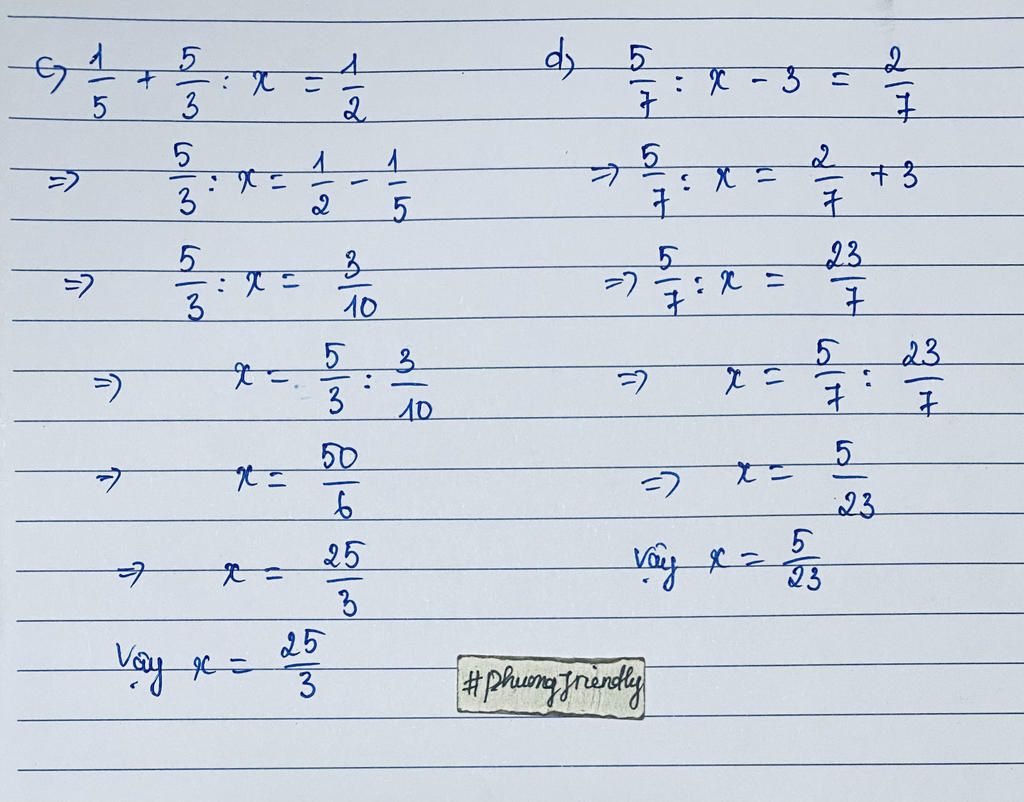 c) 1/5 + 5/3 : x = 1/2
=> 5/3 : x = 1/2 - 1/5
=> 5/3 : x = 3/10
=> x = 5/3 : 3/10
=> x = 50/6
=> x = 25/3
Vậy x = 25/3
d) 5/7 : x - 3 = 2/7
=> 5/7 : x = 2/7 + 3
=> 5/7 : x = 23/7
=> x = 5/7 : 23/7
=> x = 5/23
Vậy x = 5/23
#phuongfriendly